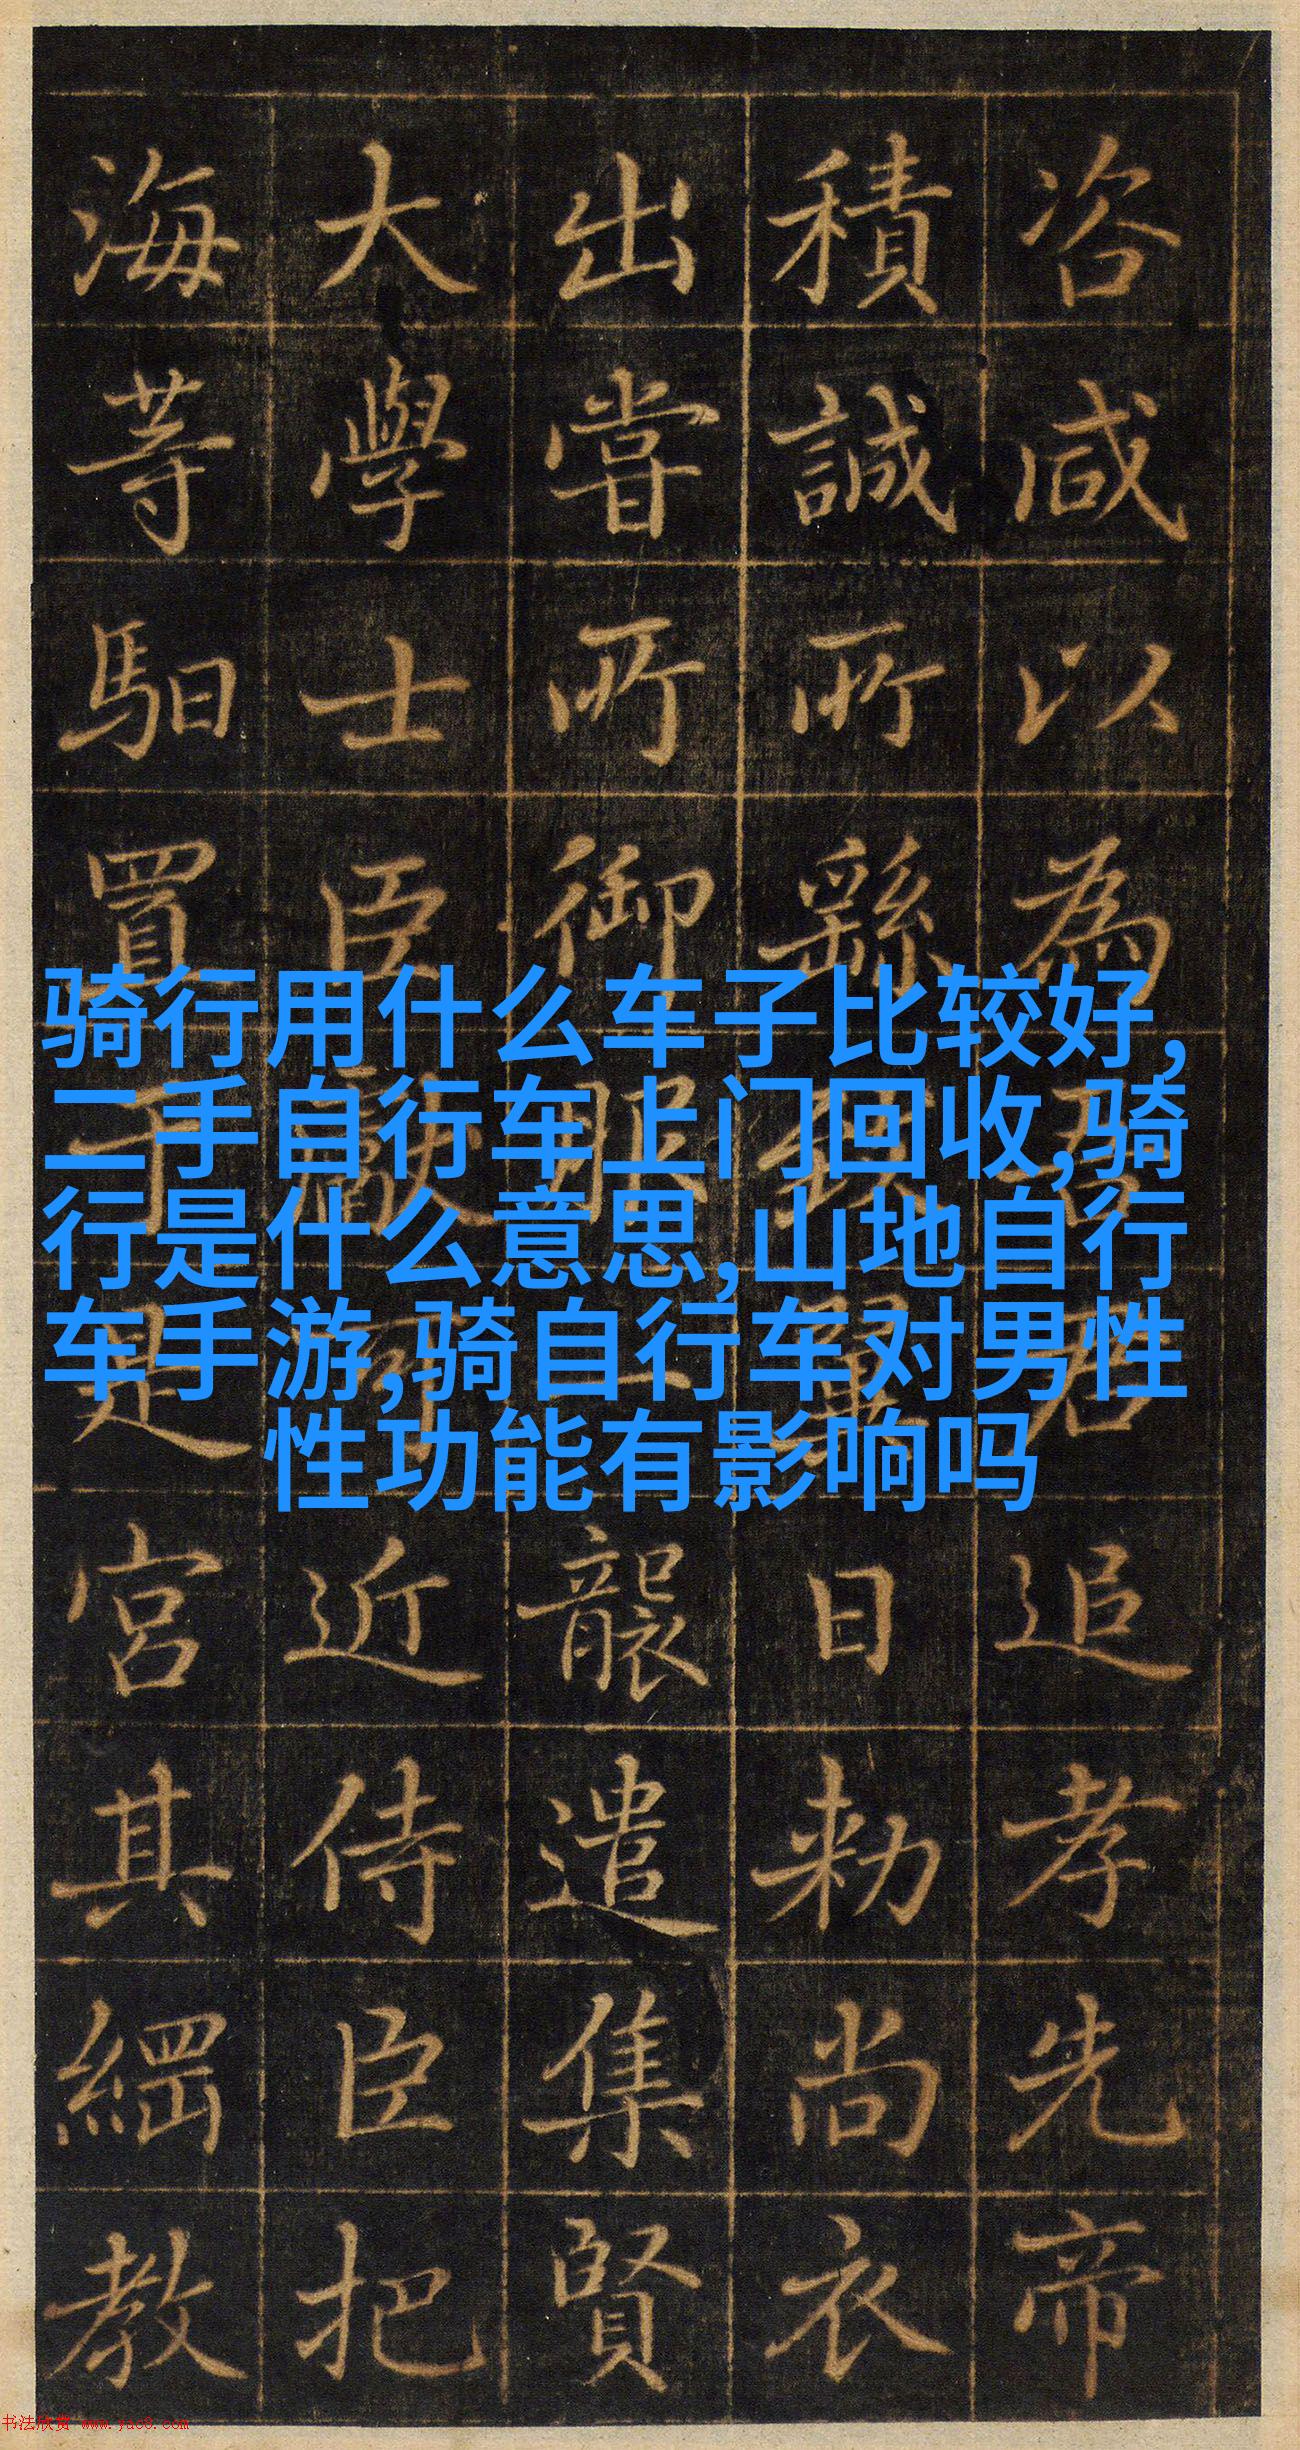 咨咸以為吾君追孝先帝
積誠所繇致異日勅尚衣
出嘗所御服一襲遣集賢
大學士臣近侍臣把
海等馹置于是宮其綱教
骑行用什么车子比较好,
二手自行车上门回收,骑
行是什么意思,山地自行
车手游,骑自行车对男性
性功能有影响吗
书法欣赏 www.yac8.com